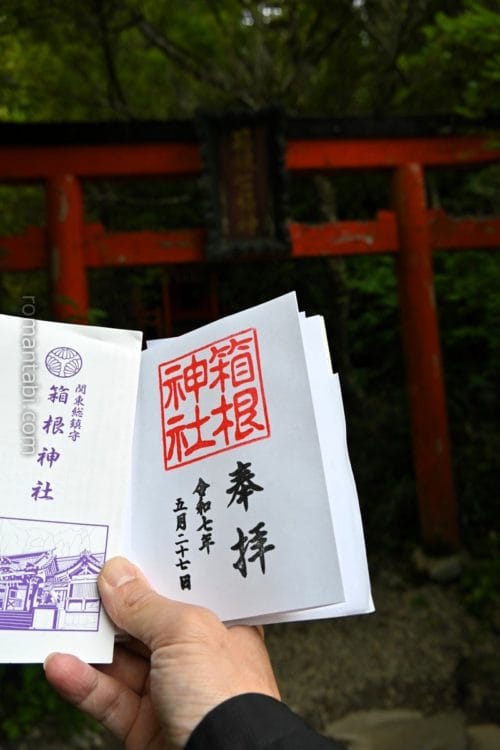 箱根
神社
奉拝
令和七年
五月二十七日
関東総鎮守
箱根神社
romantabi.com